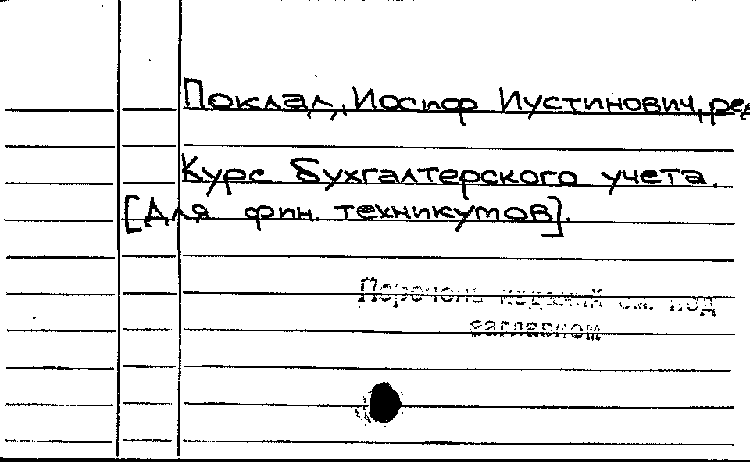 Поклад, Иосиф Иустинович, ред
Курс бухгалтерского учета.
[Для фин. техникумов].
Перечень изданий см. под
заглавием